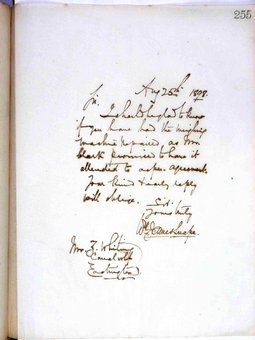 255
Aug 25th 1898
Sir
I should be glad to know
if you have had the weighing
machine repaired as Mr
Clark promised to have it
attended to as per agreement.
Your kind & early reply
will oblige.
Sir
Yours truly
Mr. J. Whiting
Eastington